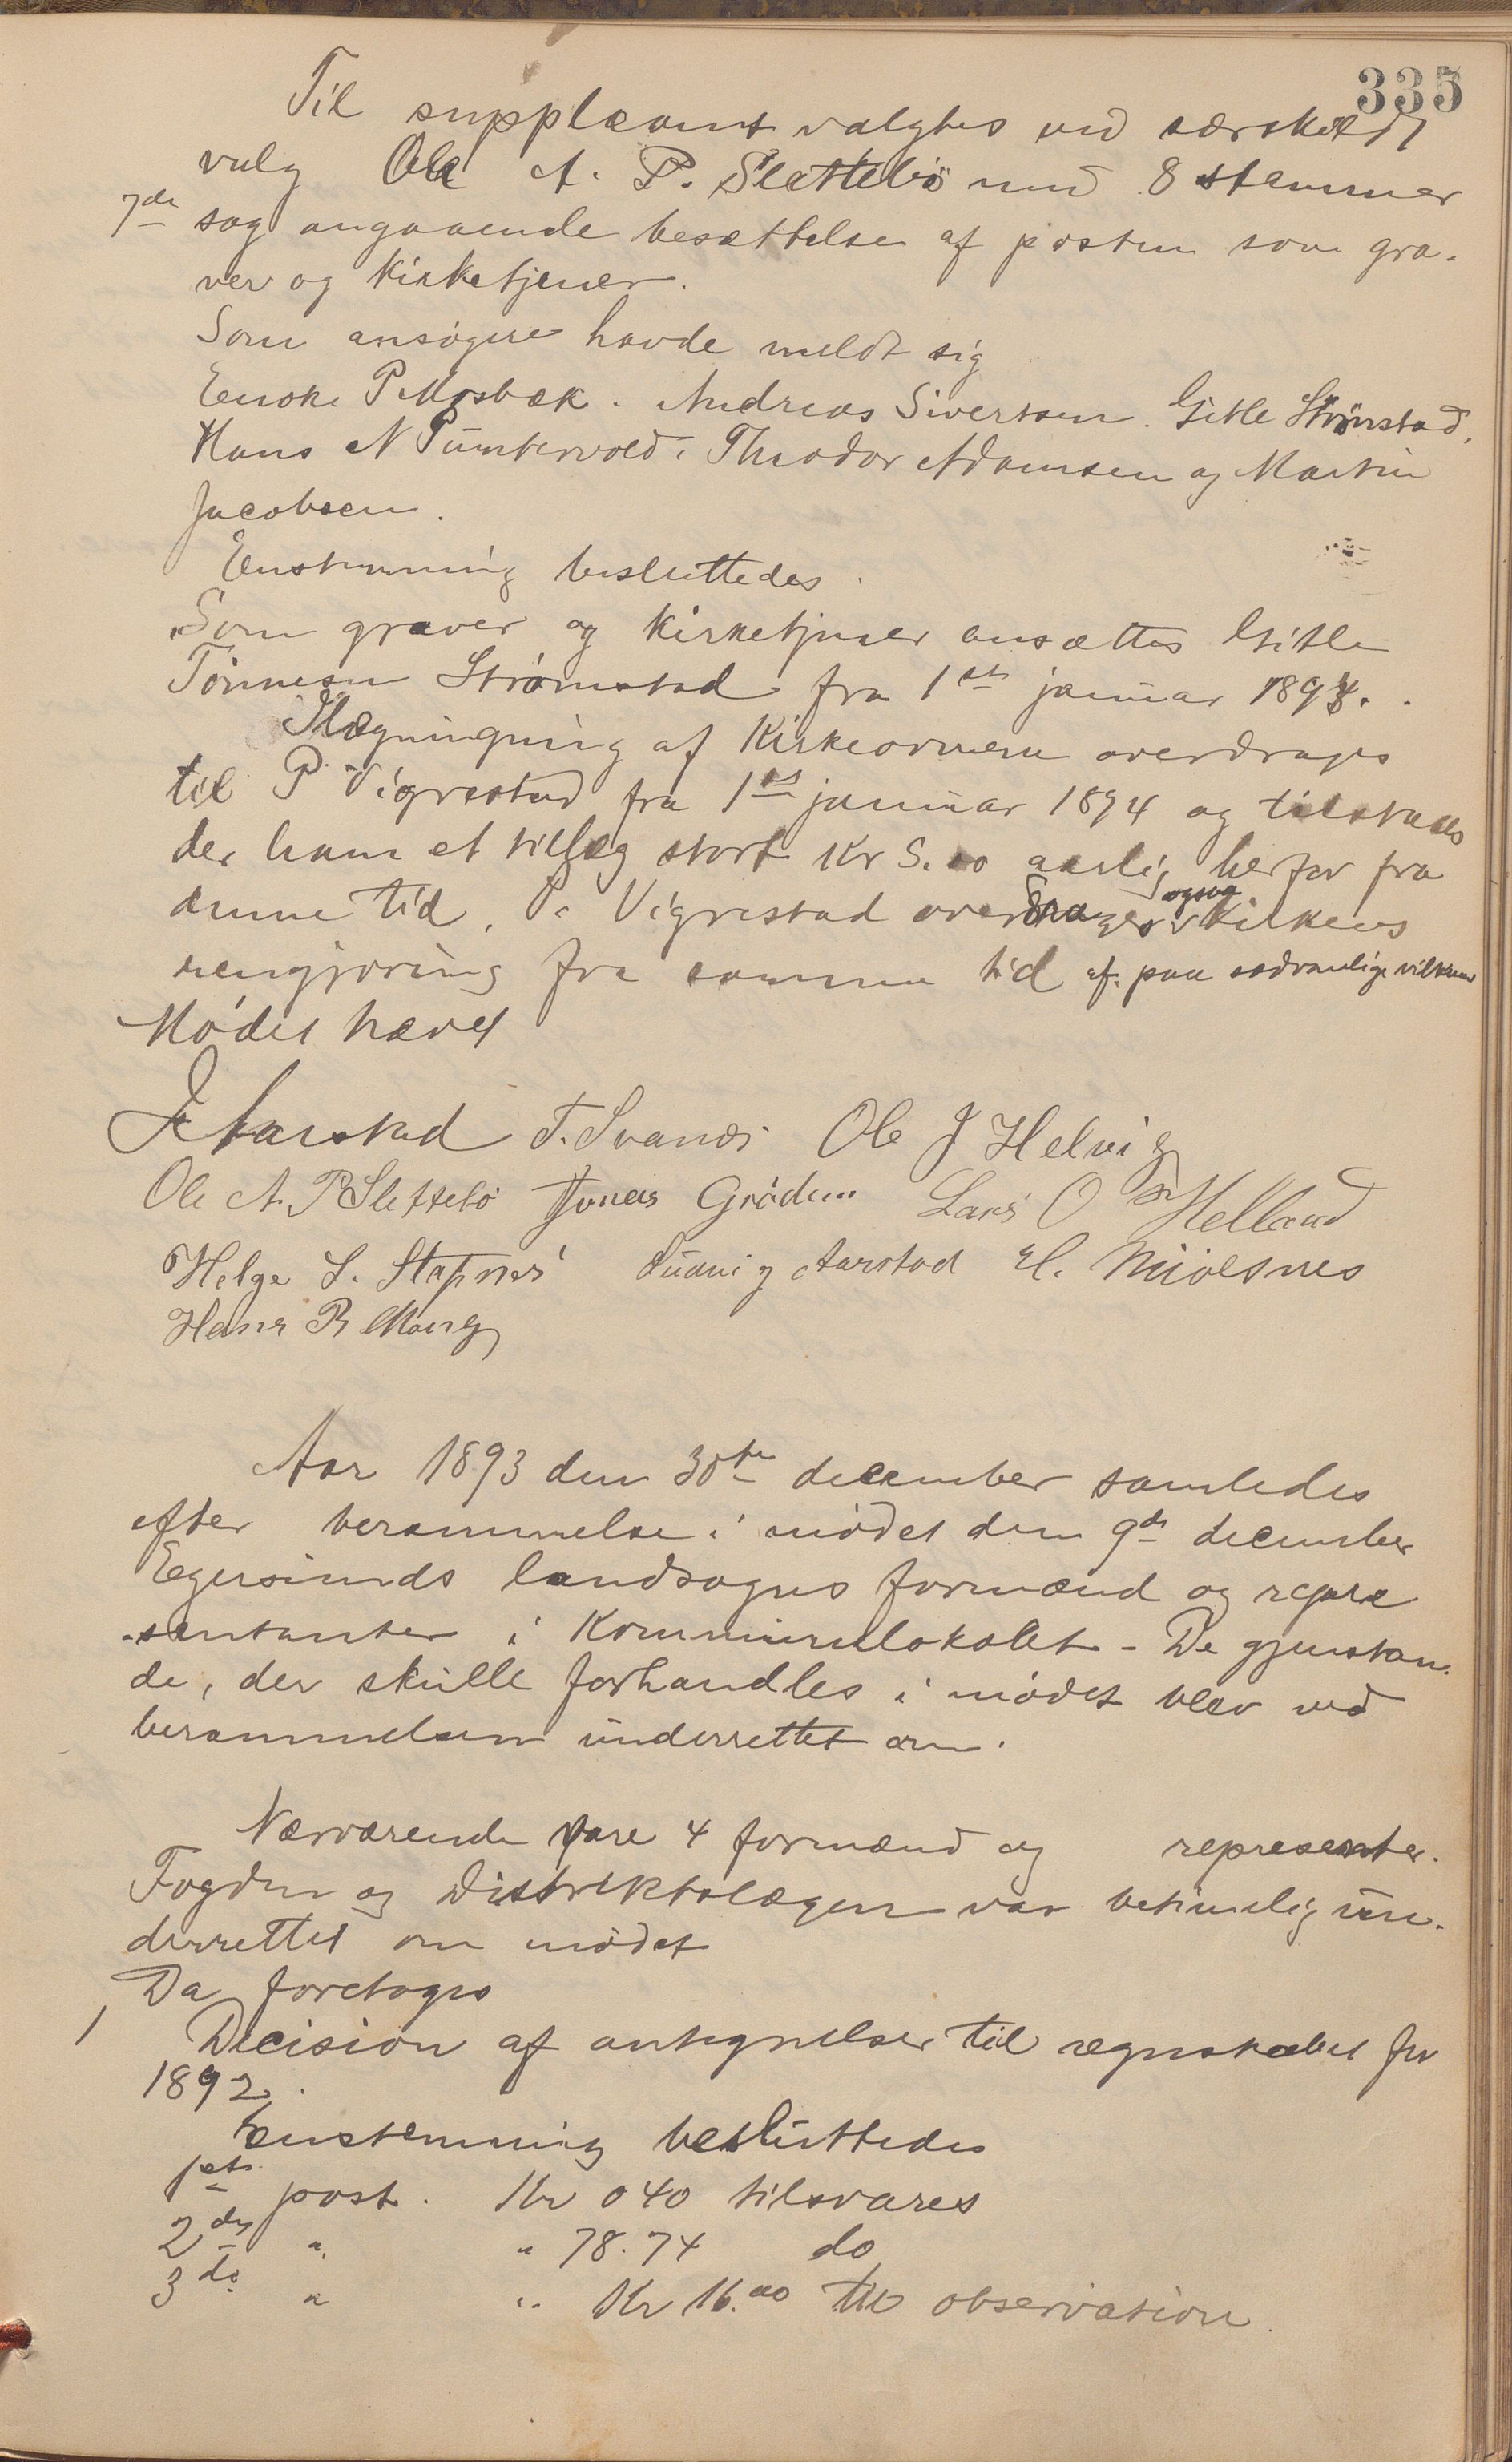 335
Til suppleant valgtes ved særskildt
valg Ole A. P. Slettebö med 8 stemmer
7de sag angaaende besættelse af posten som gra-
ver og kirketjener.
Som ansögere havde meldt sig
Enok P Mosbæk. Andreas Sivertsen. Gitle Strömstad,
Hans N Puntervold, Theodor Adamsen og Martin
Jacobsen.
Enstemmig besluttedes.
"Som graver og kirketjener ansættes Gitle
Tönnesen Strömstad fra 1ste januar 1894.
Ilægningning af Kirkeovnene overdrages
til P. Vigrestad fra 1ste januar 1894 og tilstaaes
der ham et tillæg stort Kr 5.00 aarlig herfor fra
denne tid. P. Vigrestad overdrages ogsaa kirkens
rengjøring fra samme tid af. paa sedvanlige vilkaar
Mödet hævet
J Aarstad T. Svanæs Ole J Helvig
Ole A. P Slettebö Jonas Grödem Lars O Helland
Helge L. Stapnes Ludvig Aarstad H. Mjölsnes
Hans P. Mong
Aar 1893 den 30te december samledes
efter berammelse i mödet den 9de december
Egersunds landsogns formænd og repræ
-sentanter i Kommunelokalet - De gjenstan-
de, der skulle forhandles i mödet blev ved
berammelsen underrettet om.
Nærværende vare 4 formænd og representer.
Fogden og Distriktslægen var betimelig un-
derrettet om mödet
Da foretoges
1 Decision af antegnelser til regnskabet for
1892.
Enstemmig besluttedes
1ste post. Kr 0 40 tilsvares
2den " " 78.74 do
3de " " Kr 16.00 til observation.